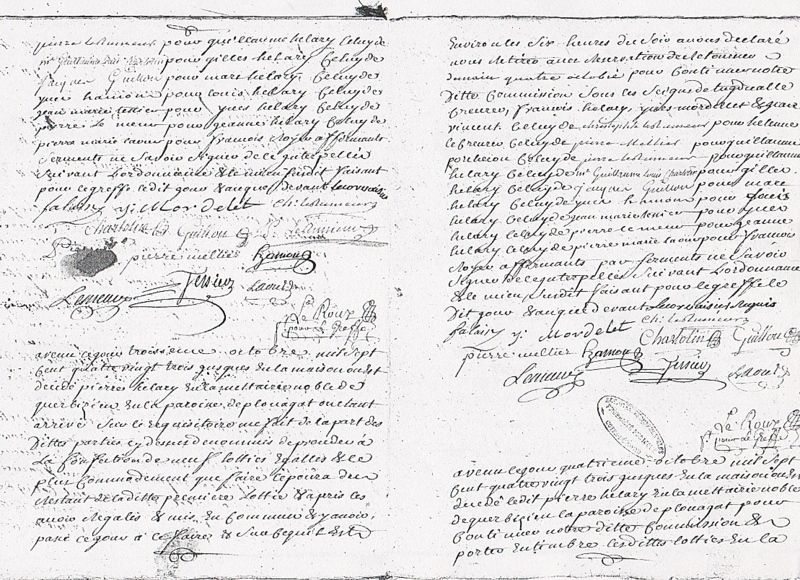 pierre Le humeur pour guillaume helary Celuy de
pour gilles helary Celuy de
jacques Guitton pour marc helary Celuy de
yves hamon pour Louis helary Celuy de
jean marie tessier pour yves helary Celuy de
pierre Le meur pour jeanne helary Celuy de
pierre marie Laour pour françois affermants
Serments ne Savoir Signer de ce
Suivant Lordonnance & Le mieu Susdit faisant
pour Le greffe Ledit jour & an que devant
falaisy yi Mordelet Ch: Le humeur
Chartolin Guitton P. Le humeur
pierre mellier hamon
Lemeur Tessier Laour
Le Roux
pour Le Greffe
avenu Ce jour troisieme octobre mil Sept
Cent quatre vingt trois jusques en la maison ou est
decedé pierre helary en la mettairie noble de
querbizien en la paroisse de plouagat ou etant
arrivé Sur Le requisitoire me fait de la part des
Dittes parties cy dessus denommés de proceder à
La Confection de neuf Lotties Egalles & le
plus Commodement que faire Le poura du
Restant de la ditte premiere Lottie & apres les
avoir Regalés & mis en Commun & y avoir
passé Ce jour à Le faire & Sur Ce quil est
Environ les Six heures du Soir avons declaré
nous Retirer avec
demain quatre octobre pour Continuer notre
Ditte Commission Sous les Seigns de
Lebreure, francois helary, yves mordelet &
Celuy de christophe Le humeur pour helenne
Lebreure Celuy de pierre Mellier pour guillaume
Celuy de pierre Le humeur pour guillaume
helary Celuy de Me Guillaume Louis Chartolin pour gilles
helary Celuy de jacques Guitton pour marc
helary Celuy de yves hamon pour Louis
helary Celuy de jean marie tessier pour yves
helary Celuy de pierre Le meur pour jeanne
helary Celuy de pierre marie Laour pour francois
affermants par Serments ne Savoir
Signer de Suivant Lordonnance
& Le mieu Susdit faisant pour Le greffe Le
Dit jour & an que devant
falaisy yi Mordelet Ch: Le humeur
pierre mellier hamon Chartolin Guitton
Lemeur Tessier Laour
Le Roux
pour Le Greffe
avenu Ce jour quatrieme octobre mil Sept
Cent quatre vingt trois jusques en la maison ou est
decedé Ledit pierre helary en la mettairie noble
de querbizien en la paroisse de plouagat pour
Continuer notre ditte Commission &
porter en timbre Ces dittes Lotties en la